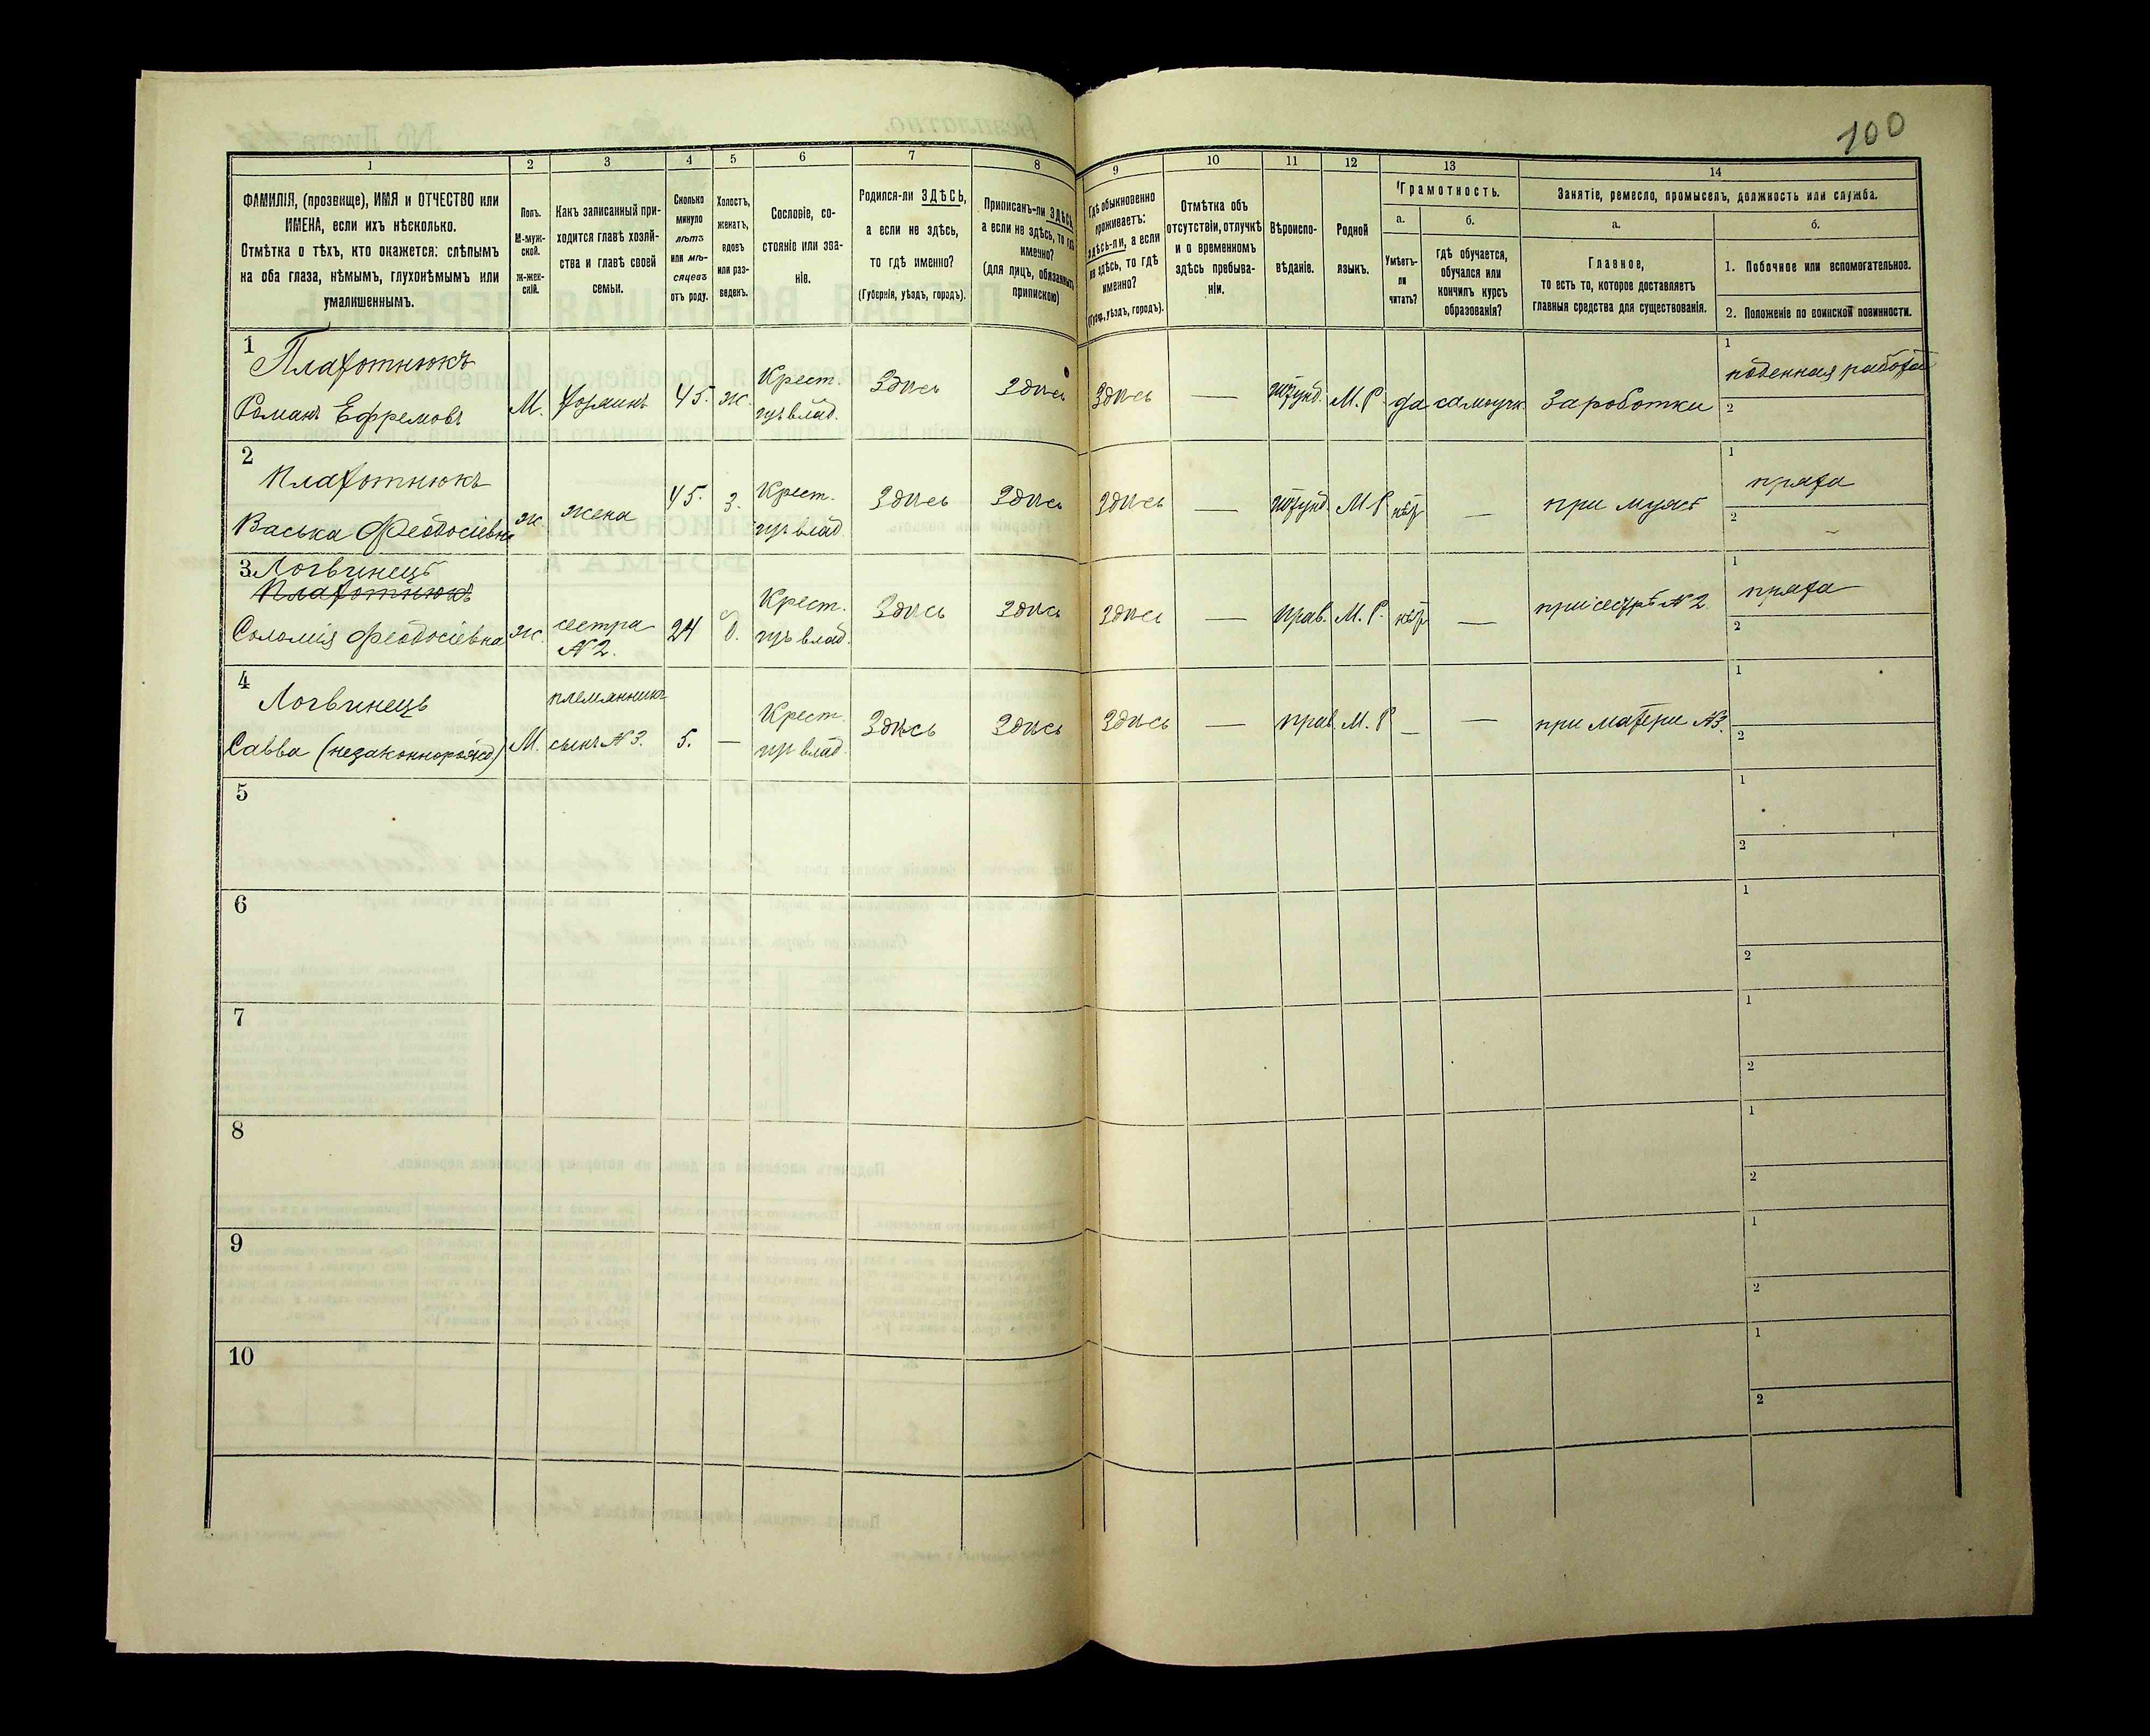 100
1
2
3
4
5
6
7
8
9
10
11
12
13
14
ФАМИЛІЯ, (прозвище), ИМЯ и ОТЧЕСТВО или
ИМЕНА, если ихъ нѣсколько.
Отмѣтка о тѣхъ, кто окажется: слѣпымъ
на оба глаза, нѣмымъ, глухонѣмымъ или
умалишеннымъ.
Полъ.
М-муж-
ской.
ж-жен-
скій.
Какъ записанный при-
ходится главѣ хозяй-
ства и главѣ своей
семьи.
Сколько
минуло
лѣтъ
или мѣ-
сяцевъ
отъ роду.
Холостъ,
женатъ,
вдовъ
или раз-
веденъ.
Сословіе, со-
стояніе или зва-
ніе.
Родился-ли ЗДѢСЬ,
а если не здѣсь,
то гдѣ именно?
(Губернія, уѣздъ, городъ).
Приписанъ-ли ЗДѢСЬ,
а если не здѣсь, то гдѣ
именно?
(для лицъ, обязанныхъ
припискою)
Гдѣ обыкновенно
проживаетъ:
здѣсь-ли, а если
не здѣсь, то гдѣ
именно?
(Губер., уѣздъ, городъ).
Отмѣтка объ
отсутствіи, отлучкѣ
и о временномъ
здѣсь пребыва-
ніи.
Вѣроиспо-
вѣданіе.
Родной
языкъ.
Грамотность.
а.
Умѣетъ-
ли
читать?
б.
гдѣ обучается,
обучался или
кончилъ курсъ
образованія?
Занятіе, ремесло, промыселъ, должность или служба.
а.
Главное,
то есть то, которое доставляетъ
главныя средства для существованія.
б.
1. Побочное или вспомогательное.
2. Положеніе по воинской повинности.
1
Плахотнюкъ
Романъ Ефремовъ
М.
хозяинъ
45.
ж.
Крест.
изъ влад.
Здѣсь
Здѣсь
Здѣсь
—
М. Р.
да
самоучк.
Заработки
1
поденная работа
2
2
Плахотнюкъ
Васька Феодосіевна
ж.
жена
45.
З.
Крест.
влад.
Здѣсь
Здѣсь
Здѣсь
—
М Р
нѣт
—
при мужѣ
1
пряха
2
3
Логвинецъ
Плахотнюкъ
Соломія Феодосіевна
ж.
сестра
№ 2.
24
Д.
Крест.
изъ влад.
Здѣсь
Здѣсь
Здѣсь
—
прав.
М. Р.
нѣт
—
при сестрѣ № 2.
1
пряха
2
4
Логвинецъ
Савва (незаконнорожд)
М.
племянникъ
сынъ № 3.
5.
—
Крест.
влад.
Здѣсь
Здѣсь
Здѣсь
—
прав.
М. Р
—
—
при матери №3.
1
2
5
1
2
6
1
2
7
1
2
8
1
2
9
1
2
10
1
2